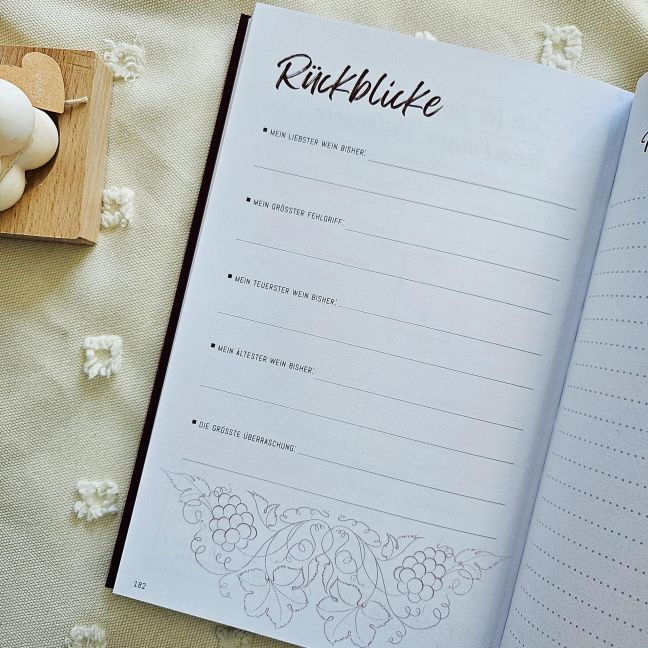 Rückblicke
MEIN LIEBSTER WEIN BISHER:
MEIN GRÖSSTER FEHLGRIFF:
MEIN TEUERSTER WEIN BISHER:
MEIN ÄLTESTER WEIN BISHER:
DIE GRÖSSTE ÜBERRASCHUNG:
182